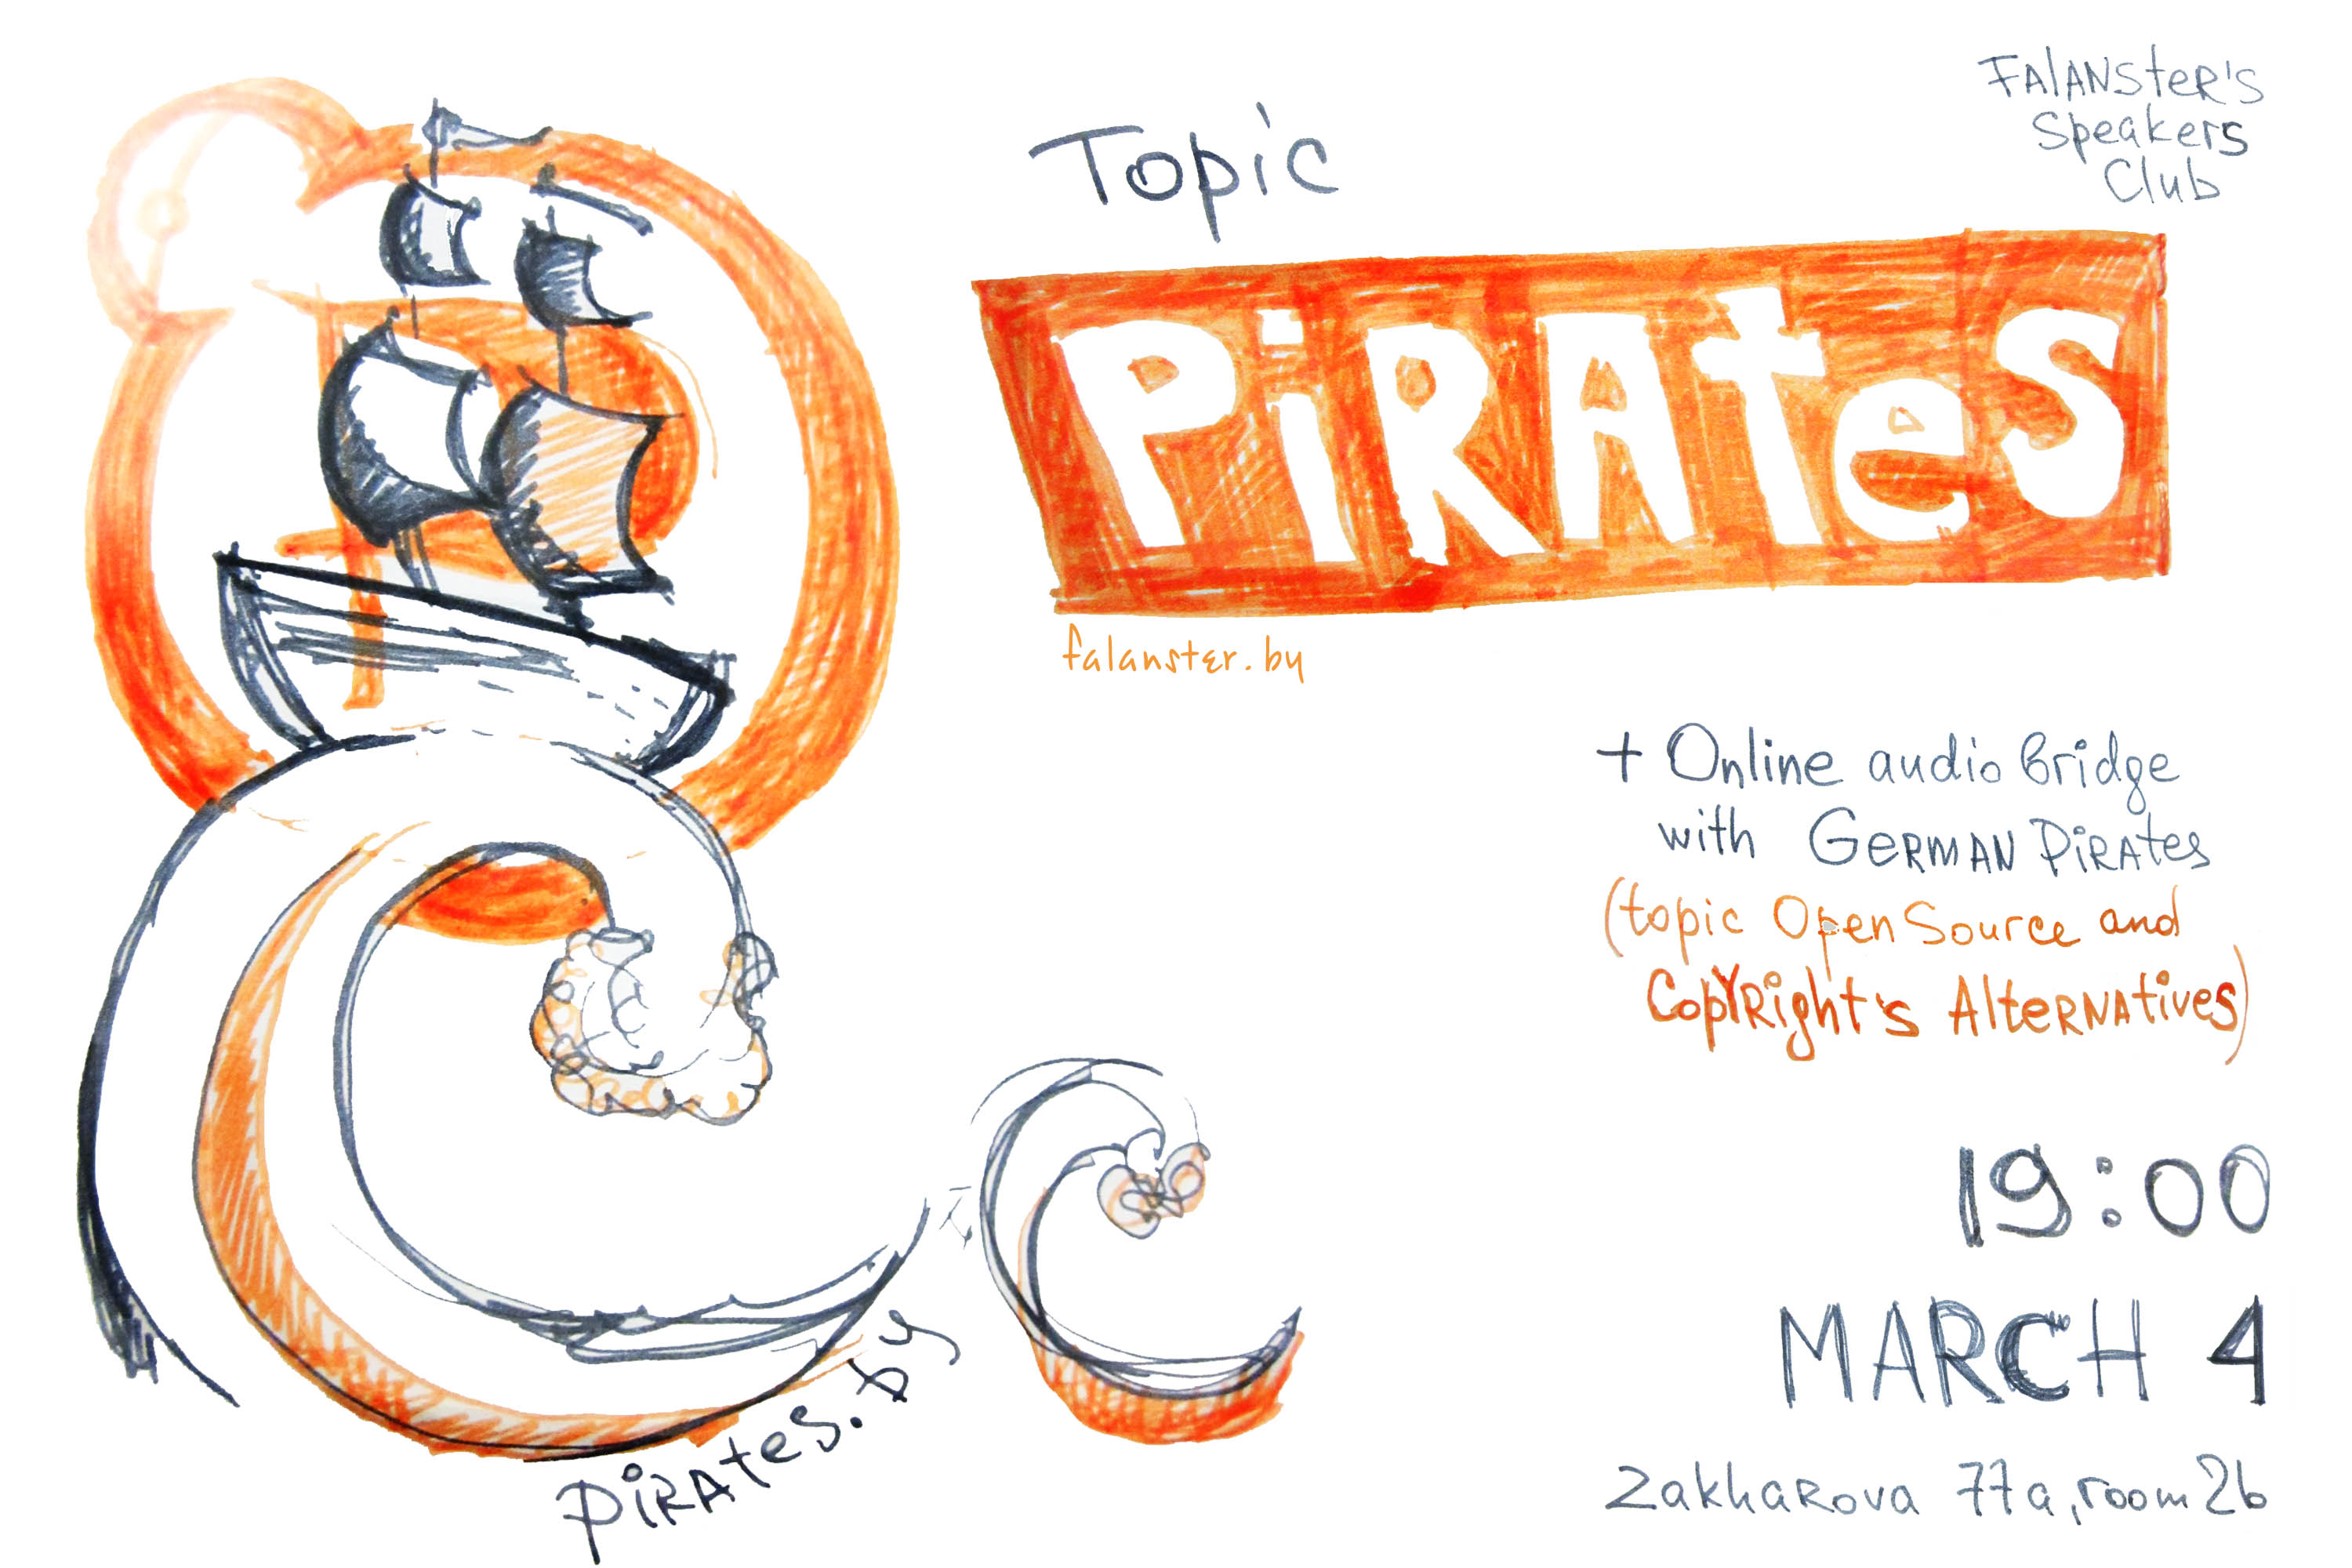 FAlANSteR's
Speakers
Club
Topic
PiRAtes
falanster.by
+ Online audio bridge
with GERMAN PiRAtes
(topic Open Source and
CopYRight's AlteRNAtives)
19:00
MARCH 4
ZakhaRova 77a, room 2b
PiRAtes.by